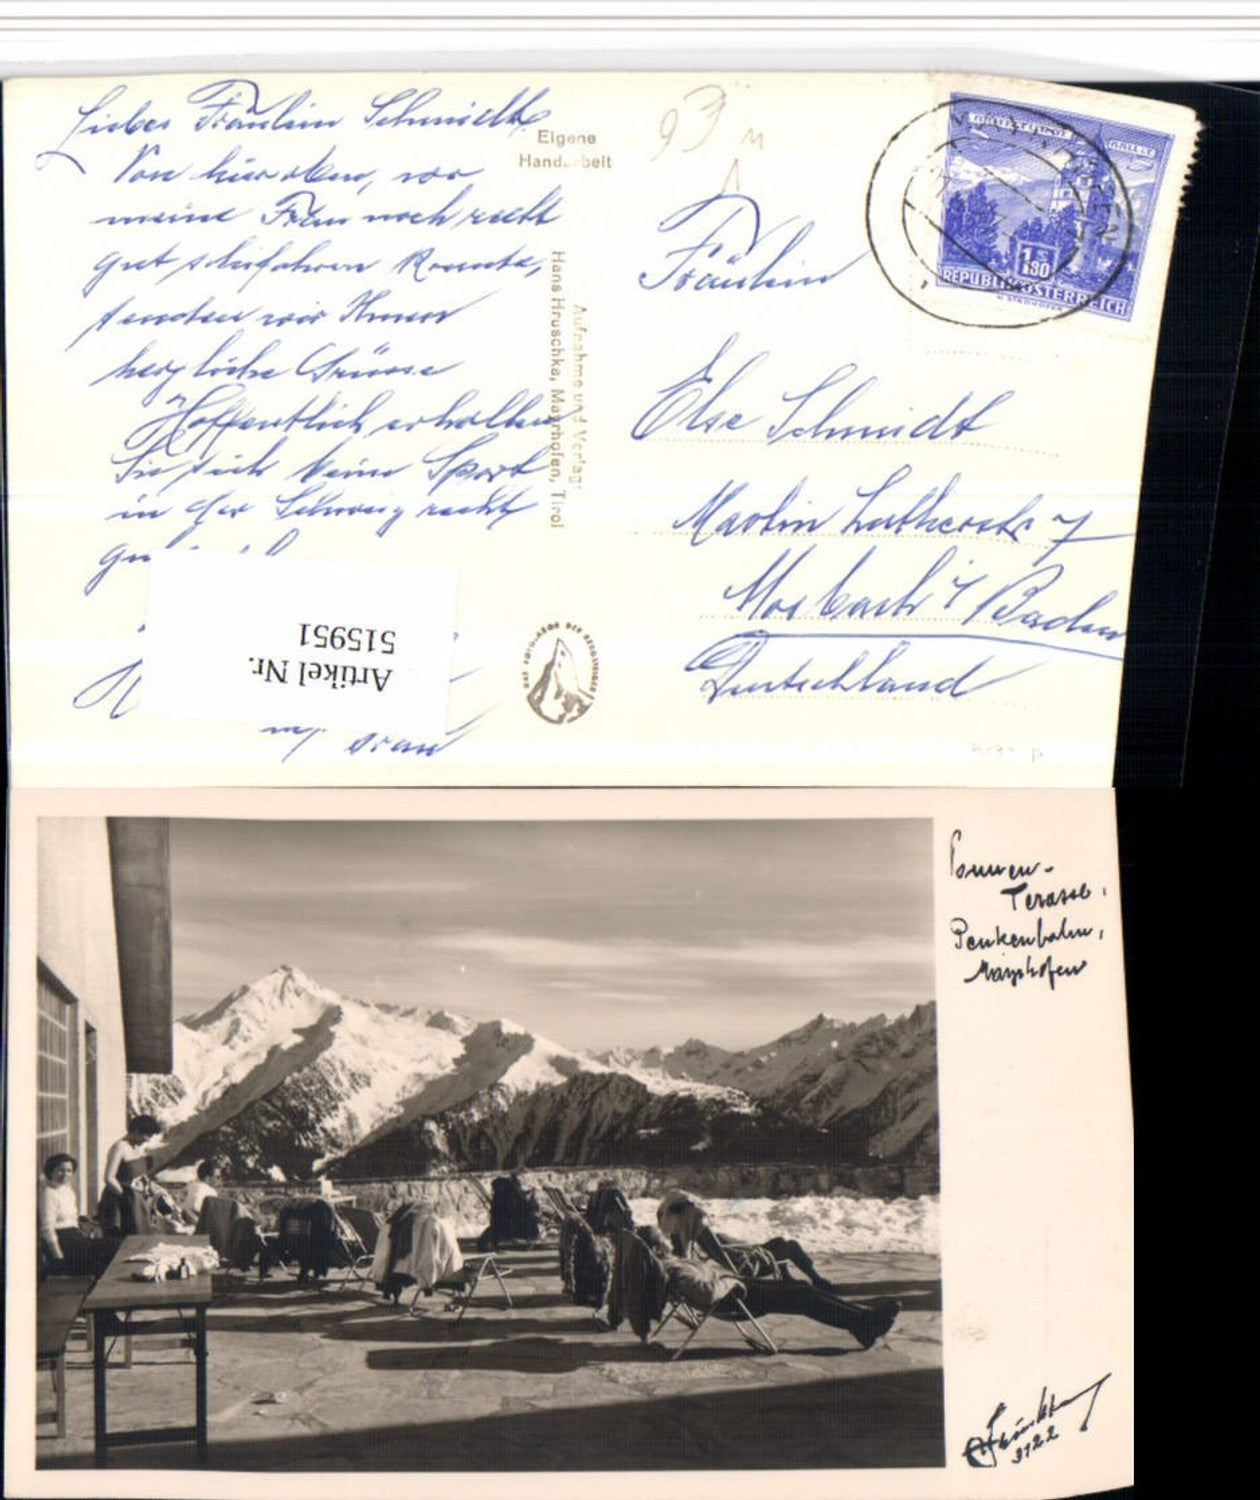 Liebes Fräulein Schmidt
Von hier oben, wo
meine Frau noch recht
gut skifahren konnte,
senden wir Ihnen
herzliche Grüsse
Hoffentlich erholten
Sie sich beim Sport
in der Schweiz recht
Frau
Eigene
Handarbeit
Aufnahme und Verlag:
Hans Hruschka, Mayrhofen, Tirol
93
Fräulein
Else Schmidt
Martin Lutherstr 7
Mosbach i/ Baden
Deutschland
1 S
1.80
REPUBLIK ÖSTERREICH
Artikel Nr.
515951
Sonnen-
Terasse,
Penkenbahn,
Mayrhofen
3122